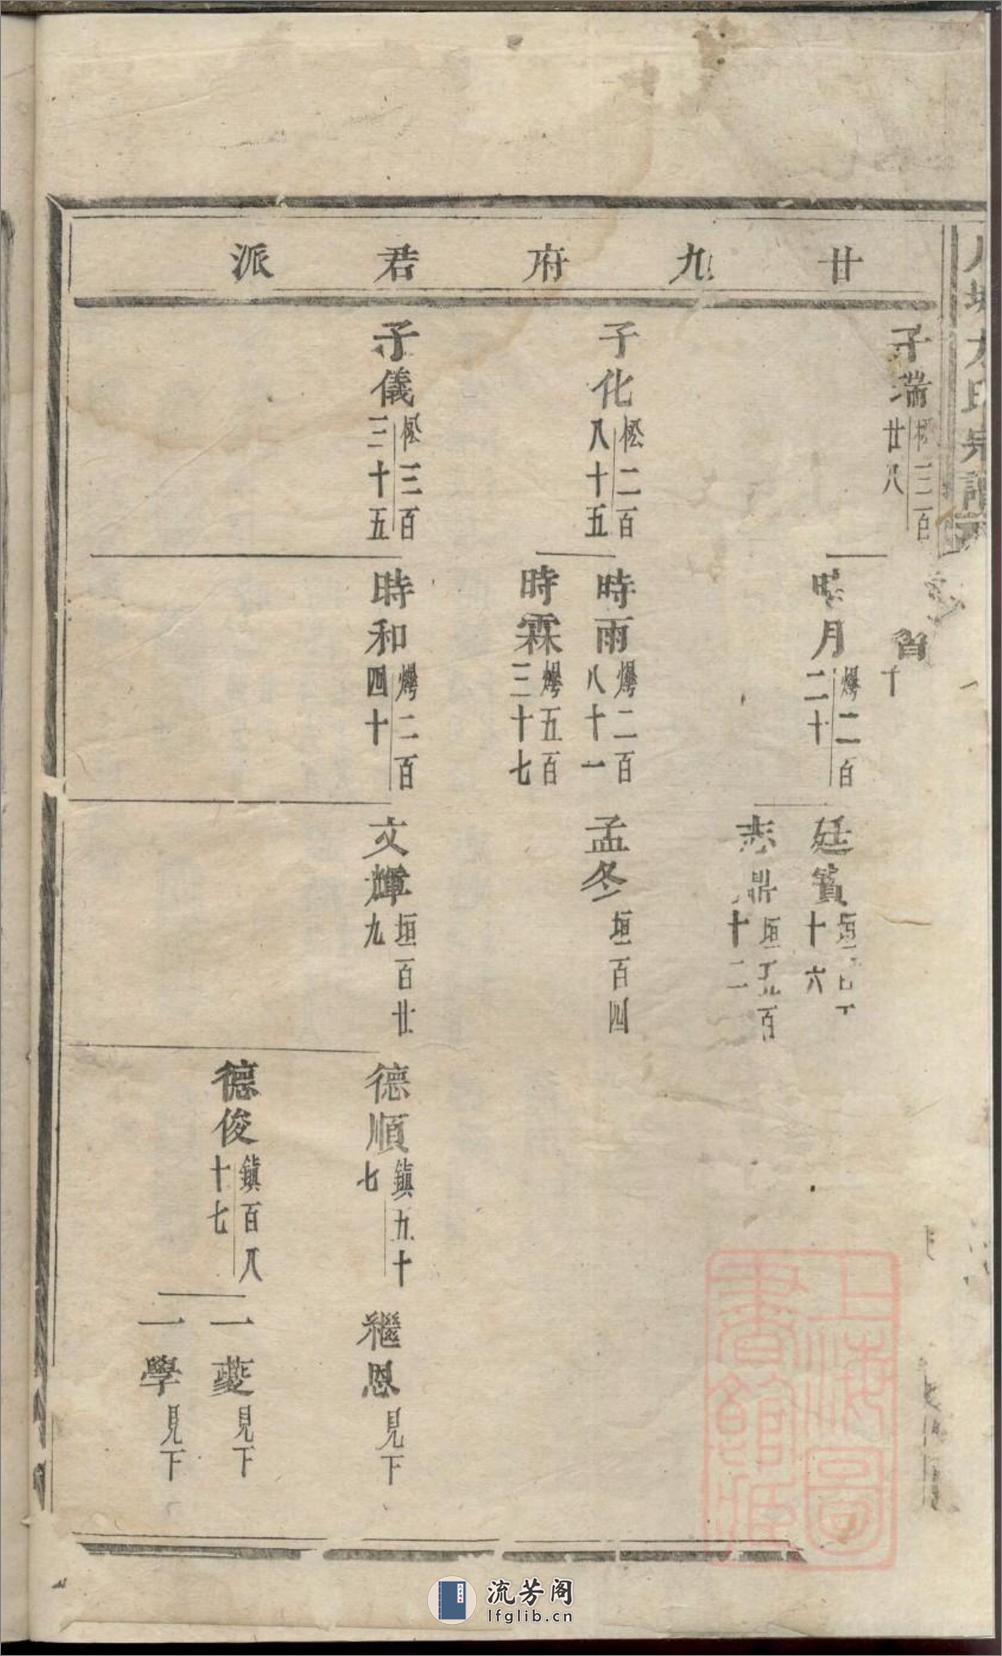 廿九府君派
宗譜
子瑞 松三百廿八
子化 松二百八十五
子儀 松三百三十五
月 爆二百二十
時雨 爆二百八十一
時霖 爆五百三十七
時和 爆二百四十
廷賓 垣 十六
志鼎 垣 百十二
孟冬 垣百四
文輝 垣百廿九
德順 鎮九十七
德俊 鎮百八十七
繼恩 見下
一夔 見下
一學 見下
上海圖書館藏
流芳阁
lfglib.cn